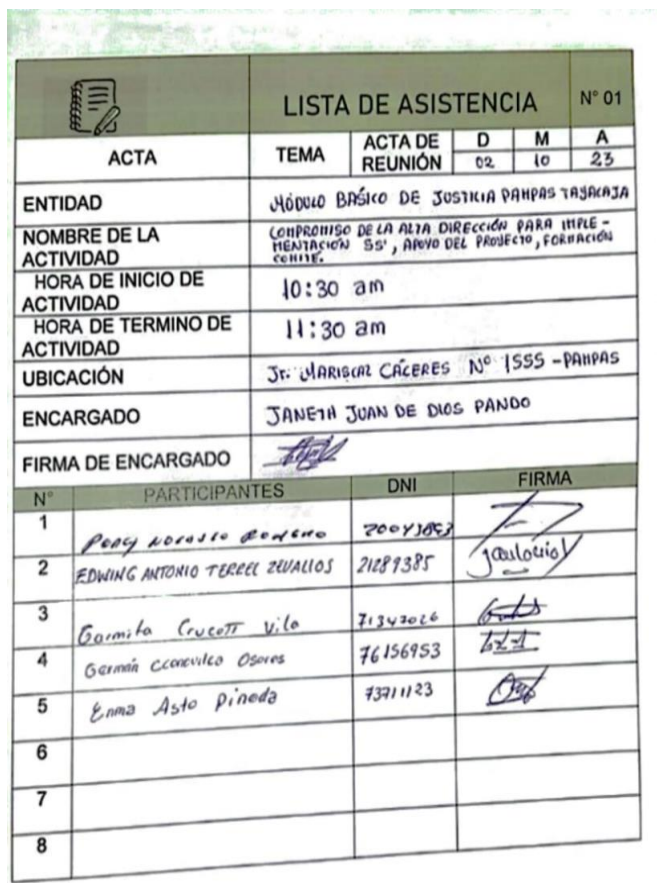 LISTA DE ASISTENCIA N° 01
ACTA TEMA ACTA DE REUNIÓN D M A
02 10 23
ENTIDAD MÓDULO BÁSICO DE JUSTICIA PAMPAS TAYACAJA
NOMBRE DE LA ACTIVIDAD
COMPROMISO DE LA ALTA DIRECCIÓN PARA IMPLE-
MENTACIÓN 5S', APOYO DEL PROYECTO, FORMACIÓN
COMITE.
HORA DE INICIO DE ACTIVIDAD 10:30 am
HORA DE TERMINO DE ACTIVIDAD 11:30 am
UBICACIÓN Jr. MARISCAL CÁCERES N° 1555 - PAMPAS
ENCARGADO JANETH JUAN DE DIOS PANDO
FIRMA DE ENCARGADO
N° PARTICIPANTES DNI FIRMA
1
2 EDWING ANTONIO TERREL ZEVALLOS 21289385
3 Vila
4 Germán Ccancvilca Osores 76156953
5 Enma Asto Pineda 73711123
6
7
8